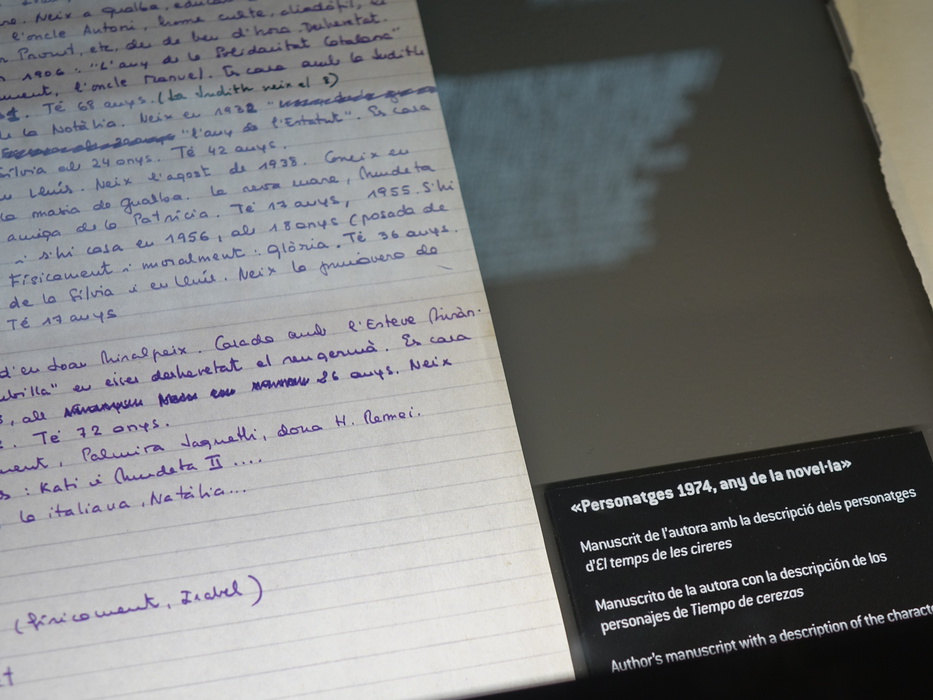 re. Neix a Gualba, educa
l'oncle Antoni, home culte, cinèfil, el
Proust, etc, des de ben d'hora. Desheretat.
n 1906. "L'any de la Solidaritat Catalana"
ment, l'oncle Manuel). Es casa amb la Judith
Té 68 anys. (La Judith neix el 8)
de la Natàlia. Neix en 1932
"l'any de l'Estatut". Es casa
Silvia als 24 anys. Té 42 anys.
Lluís. Neix l'agost de 1938. Coneix en
la masia de Gualba. La seva mare, Mundeta
amiga de la Patrícia. Té 17 anys, 1955. S'hi
i s'hi casa en 1956, als 18 anys (posada de
Físicament i moralment: Glòria. Té 36 anys.
de la Silvia i en Lluís. Neix la primavera de
Té 17 anys
d'en Joan Miralpeix. Casada amb l'Esteve Miràn-
ubilla" en ésser desheretat el seu germà. Es casa
als 36 anys. Neix
Té 72 anys.
ment, Palmira Jaquetti, dona H. Remei.
s: Kati i Mundeta II ....
la italiana, Natàlia...
(físicament, Isabel)
t
«Personatges 1974, any de la novel·la»
Manuscrit de l'autora amb la descripció dels personatges
d'El temps de les cireres
Manuscrito de la autora con la descripción de los
personajes de Tiempo de cerezas
Author's manuscript with a description of the characte